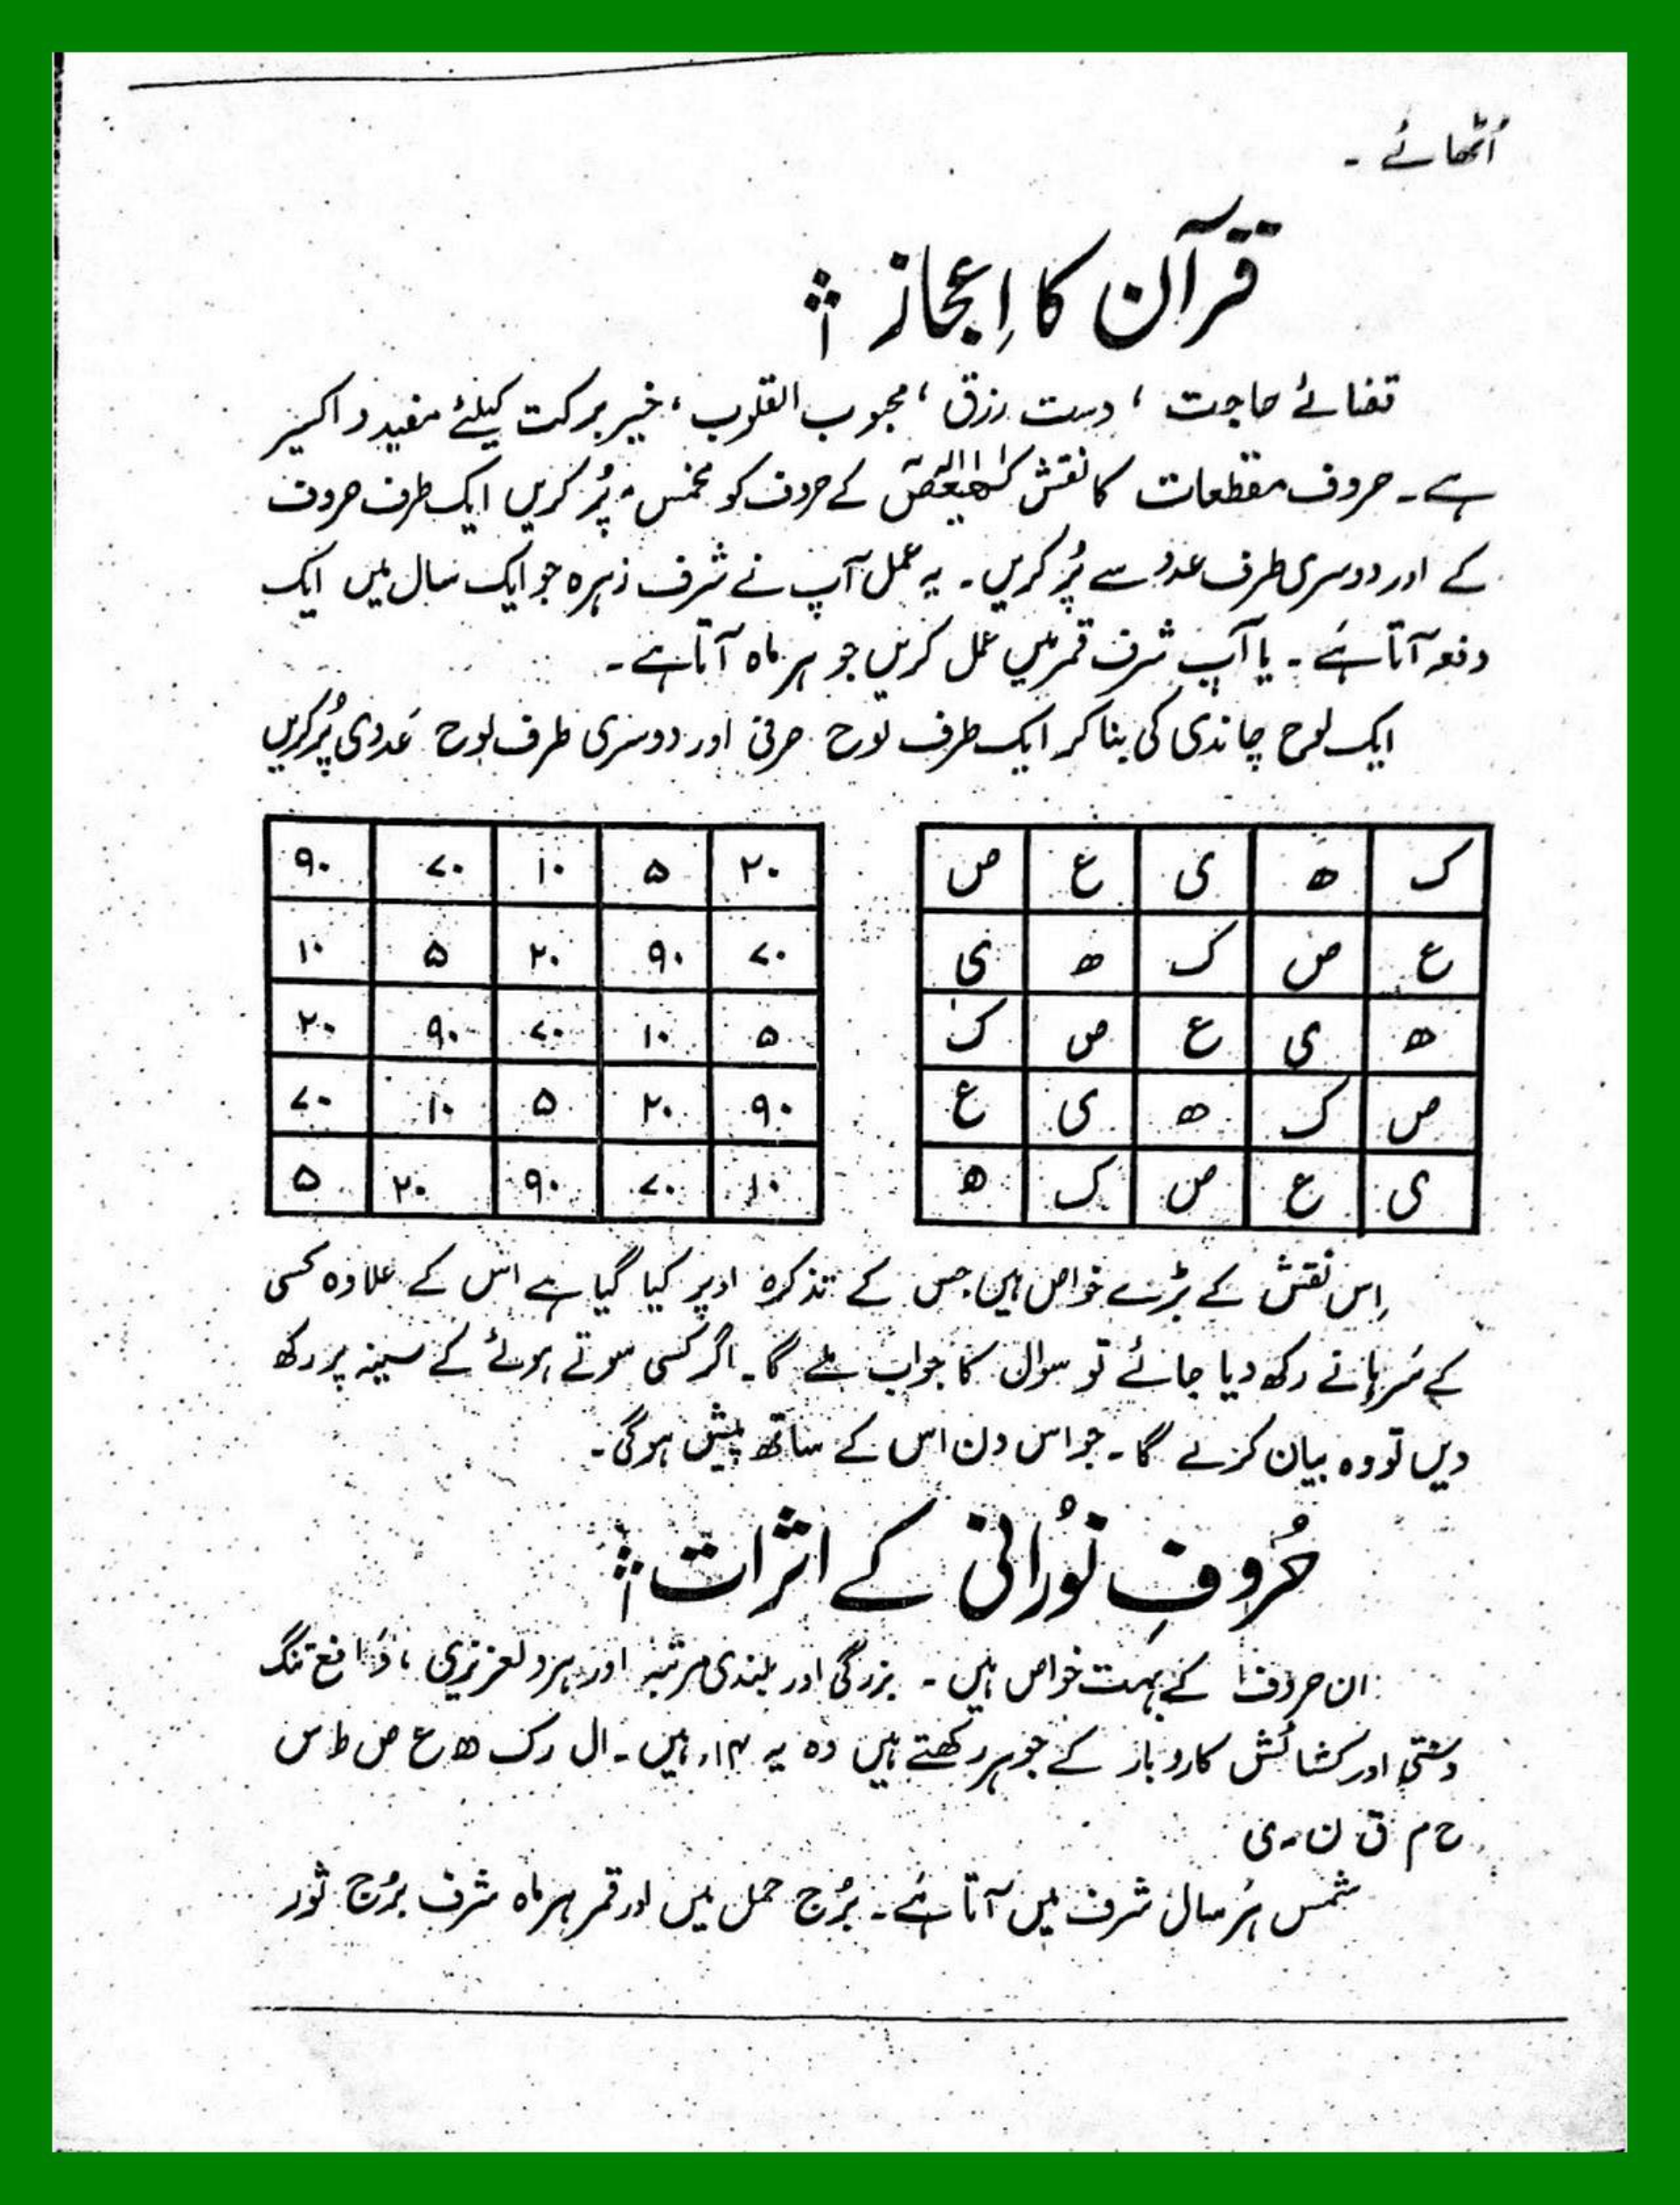 اُٹھائے ۔
قرآن کا اِعجاز
قضائے حاجت ، دست رزق ، محبوب القلوب ، خیر برکت کیلئے مفید و اکسیر
ہے ۔ حروف مقطعات کا نقش کھیعص کے حروف کو مخمس پُر کریں ایک طرف حروف
کے اور دوسری طرف عدد سے پُر کریں ۔ یہ عمل آپ نے شرف زہرہ جو ایک سال میں ایک
دفعہ آتا ہے ۔ یا آپ شرف قمر میں عمل کریں جو ہر ماہ آتا ہے ۔
ایک لوح چاندی کی بنا کر ایک طرف لوح حرفی اور دوسری طرف لوح عددی پُر کریں
ک ھ ی ع ص
ع ص ک ھ ی
ھ ی ع ص ک
ص ک ھ ی ع
ی ع ص ک ھ
۲۰ ۵ ۱۰ ۷۰ ۹۰
۷۰ ۹۰ ۲۰ ۵ ۱۰
۵ ۱۰ ۷۰ ۹۰ ۲۰
۹۰ ۲۰ ۵ ۱۰ ۷۰
۱۰ ۷۰ ۹۰ ۲۰ ۵
اِس نقش کے بڑے خواص ہیں جس کے تذکرہ اوپر کیا گیا ہے اس کے علاوہ کسی
کے سَرہانے رکھ دیا جائے تو سوال کا جواب ملے گا ۔ اگر کسی سوتے ہوئے کے سینہ پر رکھ
دیں تو وہ بیان کرے گا ۔ جو اس دن اس کے ساتھ پیش ہوگی ۔
حُروفِ نُورانی کے اثرات
ان حروف کے بہت خواص ہیں ۔ بزرگی اور بلندی مرتبہ اور ہر دلعزیزی ، دافع تنگ
دستی اور کشائش کاروبار کے جوہر رکھتے ہیں وہ یہ ۱۴ ہیں ۔ ال رک ھ ع ص ط س
ح م ق ن ۔ ی
شمس ہَر سال شرف میں آتا ہے ۔ بُرج حمل میں اور قمر ہر ماہ شرف بُرج ثور